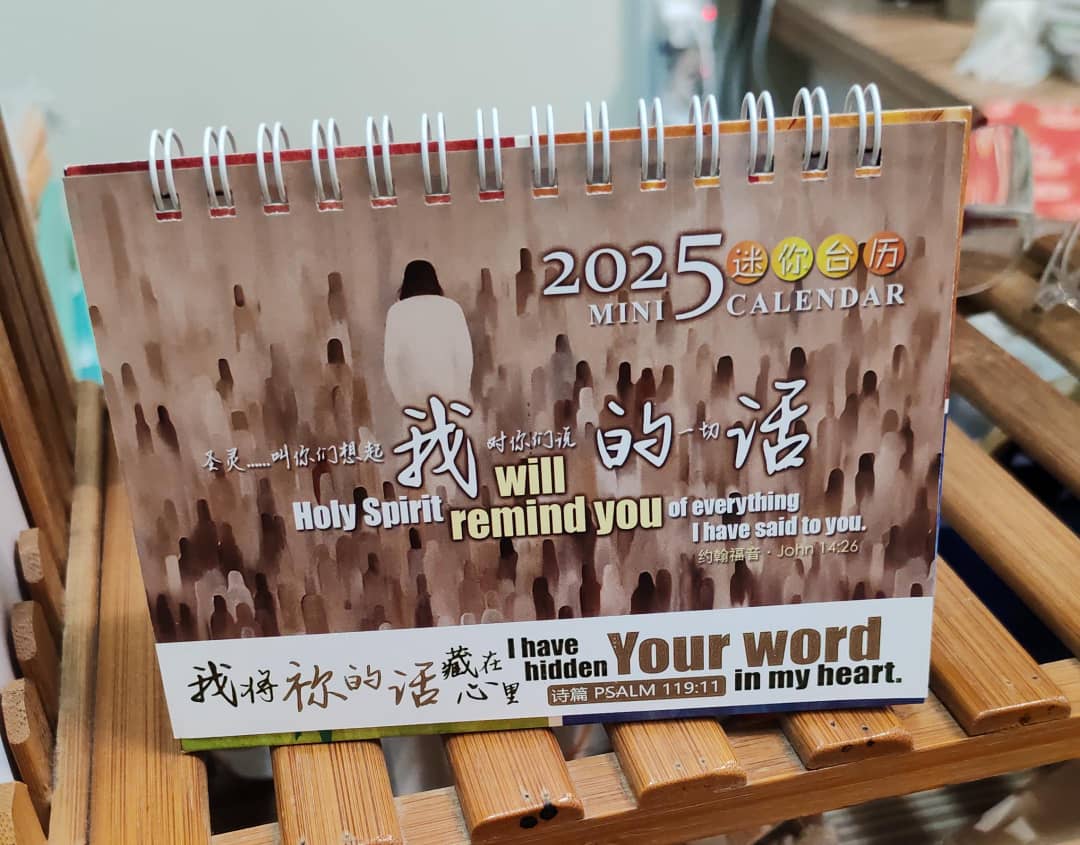 2025 迷你台历
MINI CALENDAR
圣灵......叫你们想起我对你们说的一切话
Holy Spirit will
remind you of everything
I have said to you.
约翰福音·John 14:26
我将祢的话藏在心里
I have hidden Your word
in my heart.
诗篇 PSALM 119:11